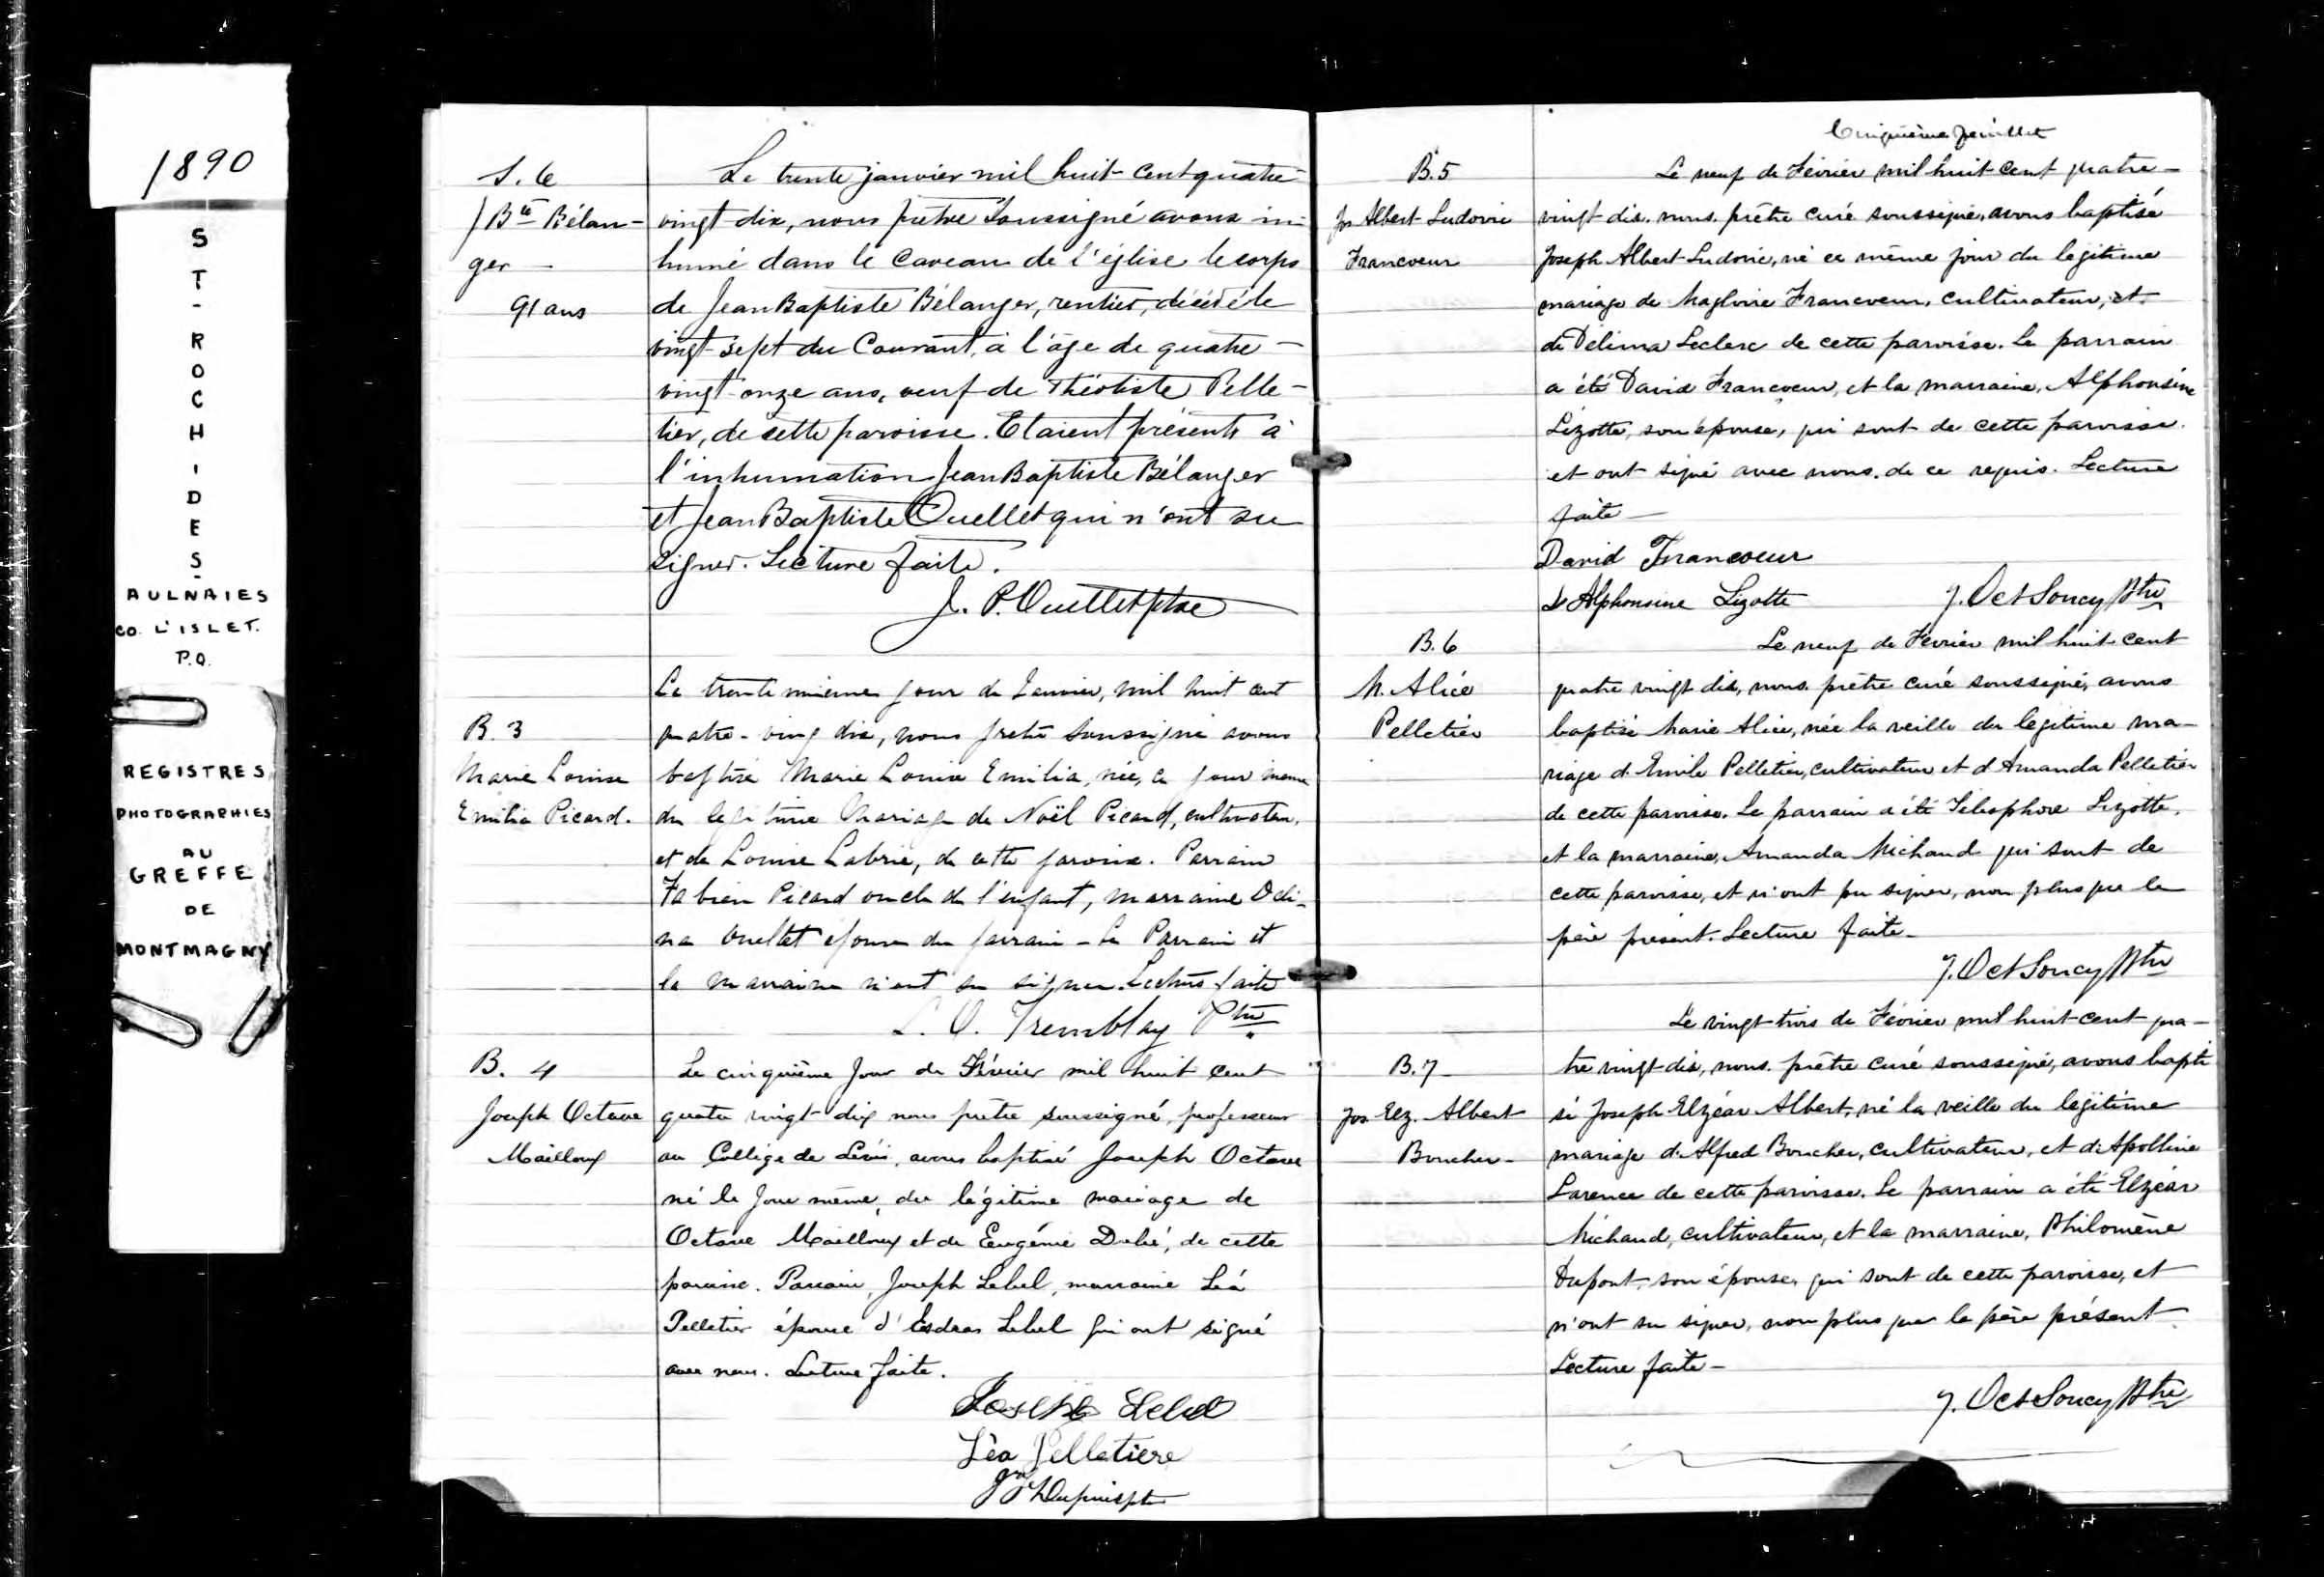 1890
ST-ROCH-DES-
AULNAIES
CO. L'ISLET.
P.Q.
REGISTRES
PHOTOGRAPHIES
AU
GREFFE
DE
MONTMAGNY
S. 6
J Bte Bélan-
ger
91 ans
Le trente janvier mil huit-cent quatre-
vingt-dix, nous prêtre soussigné avons in-
humé dans le caveau de l'église le corps
de Jean Baptiste Bélanger, rentier, décédé le
vingt-sept du courant, à l'âge de quatre-
vingt-onze ans, veuf de Théotiste Pelle-
tier, de cette paroisse. Etaient présents à
l'inhumation Jean Baptiste Bélanger
et Jean Baptiste Ouellet qui n'ont su
signer. Lecture faite.
J. P. Ouellet ptre
B. 3
Marie Louise
Emilia Picard.
Le trentemième jour de Janvier, mil huit cent
quatre-ving dix, nous pretre soussigné avons
baptisé Marie Louise Emilia, née, ce jour meme
du legitime Mariage de Noël Picard, cultivateur,
et de Louise Labrie, de cette paroisse. Parrain
Fabien Picard oncle de l'enfant, marraine Déli-
na Ouellet epouse du parrain - Le Parrain et
la marraine n'ont su signer. Lecture faite
L. O. Tremblay Ptre
B. 4
Joseph Octave
Mailloux
Le cinquième jour de Février mil huit cent
quatre vingt-dix nous prêtre soussigné, professeur
au Collège de Lévis, avons baptisé Joseph Octave
né le jour même, du légitime mariage de
Octave Mailloux et de Eugénie Dubé, de cette
paroisse. Parrain, Joseph Lebel, marraine Léa
Pelletier épouse d'Esdras Lebel qui ont signé
avec nous. Lecture faite.
Joseph Lebel
Lèa Pelletiere
Dupuis ptr
Cinquième feuillet
B. 5
Jos Albert Ludovic
Francoeur
Le neuf de Février mil huit cent quatre-
vingt dix, nous, prêtre curé soussigné, avons baptisé
Joseph Albert Ludovic, né ce même jour du légitime
mariage de Magloire Francoeur, cultivateur, et
de Délima Leclerc de cette paroisse. Le parrain
a été David Francoeur, et la marraine, Alphonsine
Lizotte, son épouse, qui sont de cette paroisse
et ont signé avec nous, de ce requis. Lecture
faite-
David Francoeur
D Alphonsine Lizotte J. Oct Soucy Ptre
B. 6
M. Alice
Pelletier
Le neuf de Février mil huit cent
quatre vingt dix, nous, prêtre curé soussigné, avons
baptisé Marie Alice, née la veille du légitime ma-
riage d'Emile Pelletier, cultivateur et d'Amanda Pelletier
de cette paroisse. Le parrain a été Télesphore Lizotte,
et la marraine, Amanda Michaud qui sont de
cette paroisse, et n'ont pu signer, non plus que le
père présent. Lecture faite-
J. Oct Soucy Ptre
B. 7
Jos Elz. Albert
Boucher-
Le vingt-trois de Février mil huit-cent qua-
tre vingt-dix, nous, prêtre curé soussigné, avons bapti
sé Joseph Elzéar Albert, né la veille du légitime
mariage d'Alfred Boucher, cultivateur, et d'Apolline
Larence de cette paroisse. Le parrain a été Elzéar
Michaud, cultivateur, et la marraine, Philomène
Dupont, son épouse, qui sont de cette paroisse, et
n'ont su signer, non plus que le père présent
Lecture faite-
J. Oct Soucy Ptre